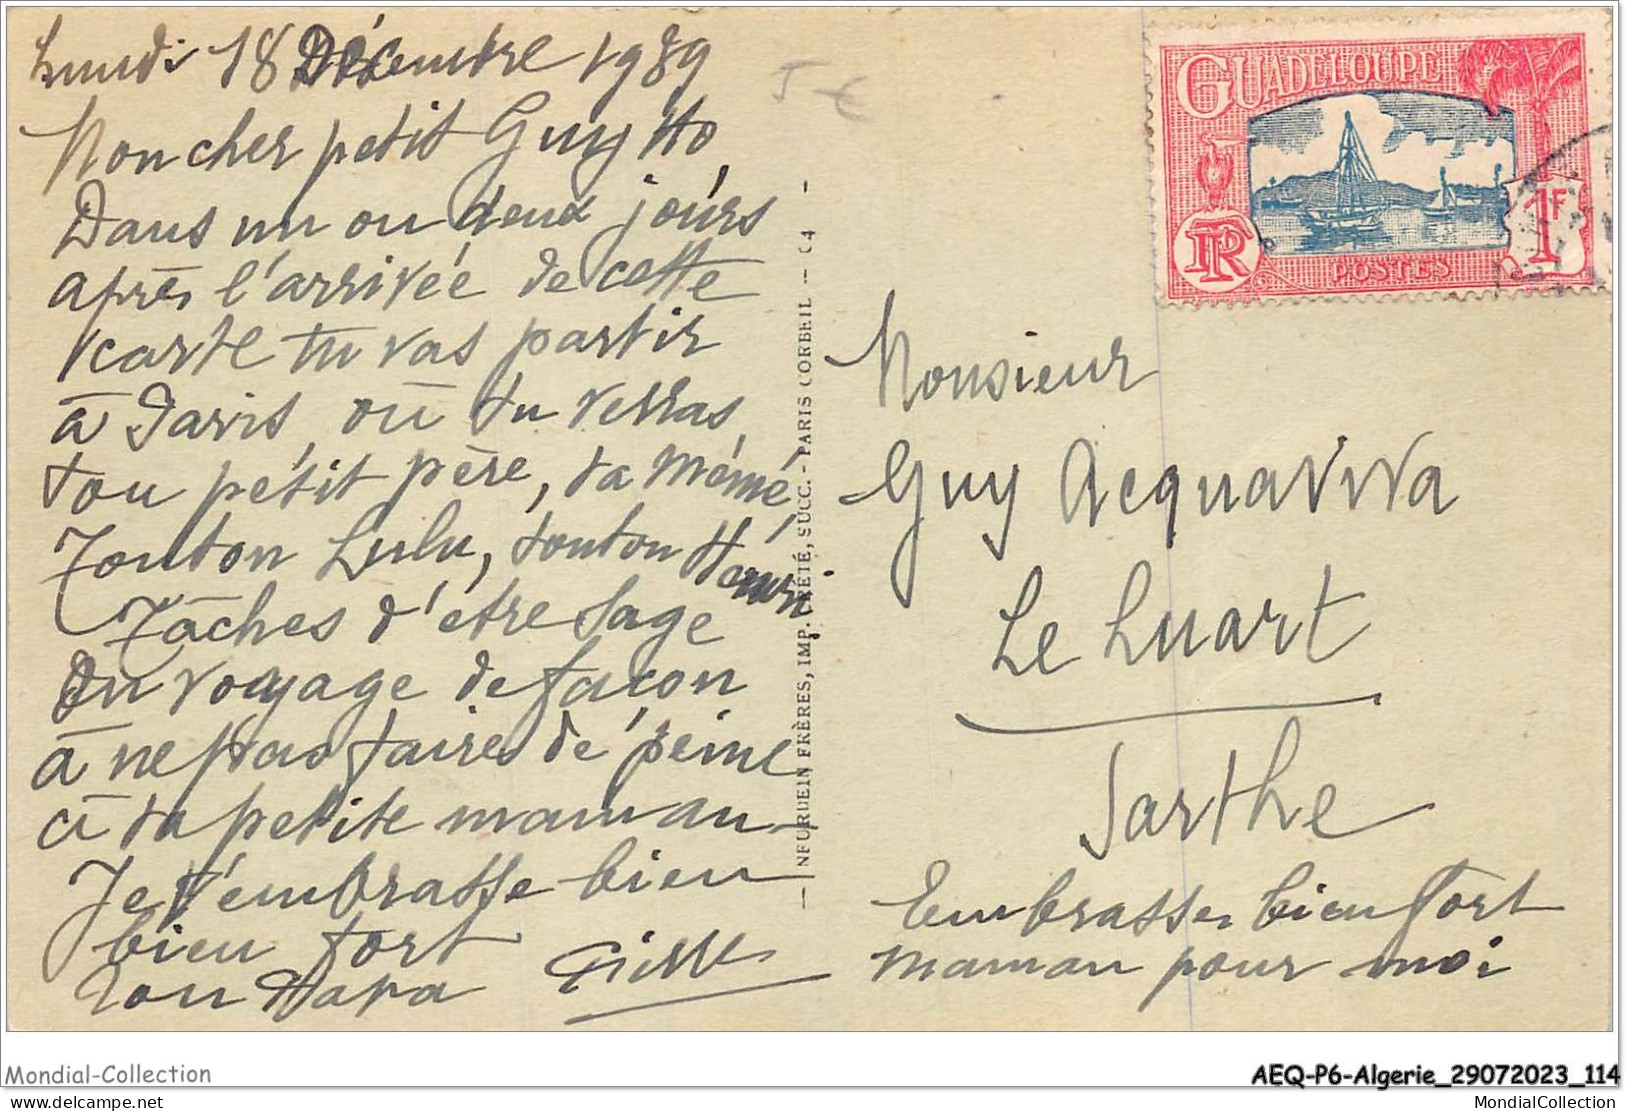 Lundi 18 Décembre 1939
Mon cher petit Guytto,
Dans un ou deux jours
après l'arrivée de cette
carte tu vas partir
à Paris, où tu verras,
ton petit père, ta Mémé,
Tonton Lulu, tonton Henri
Tâches d'être sage
Du voyage de façon
à ne pas faires de peine
à ta petite maman
Je t'embrasse bien
bien fort
Ton Papa
- NEURDEIN FRÈRES, IMP. CRÉTÉ, SUCC. - PARIS CORBEIL - C4 -
5 €
GUADELOUPE
RF
1F
POSTES
Monsieur
Guy Acquaviva
Le Luart
Sarthe
Embrasses bien fort
maman pour moi
Mondial-Collection
AEQ-P6-Algerie_29072023_114
www.delcampe.net
MondialCollection